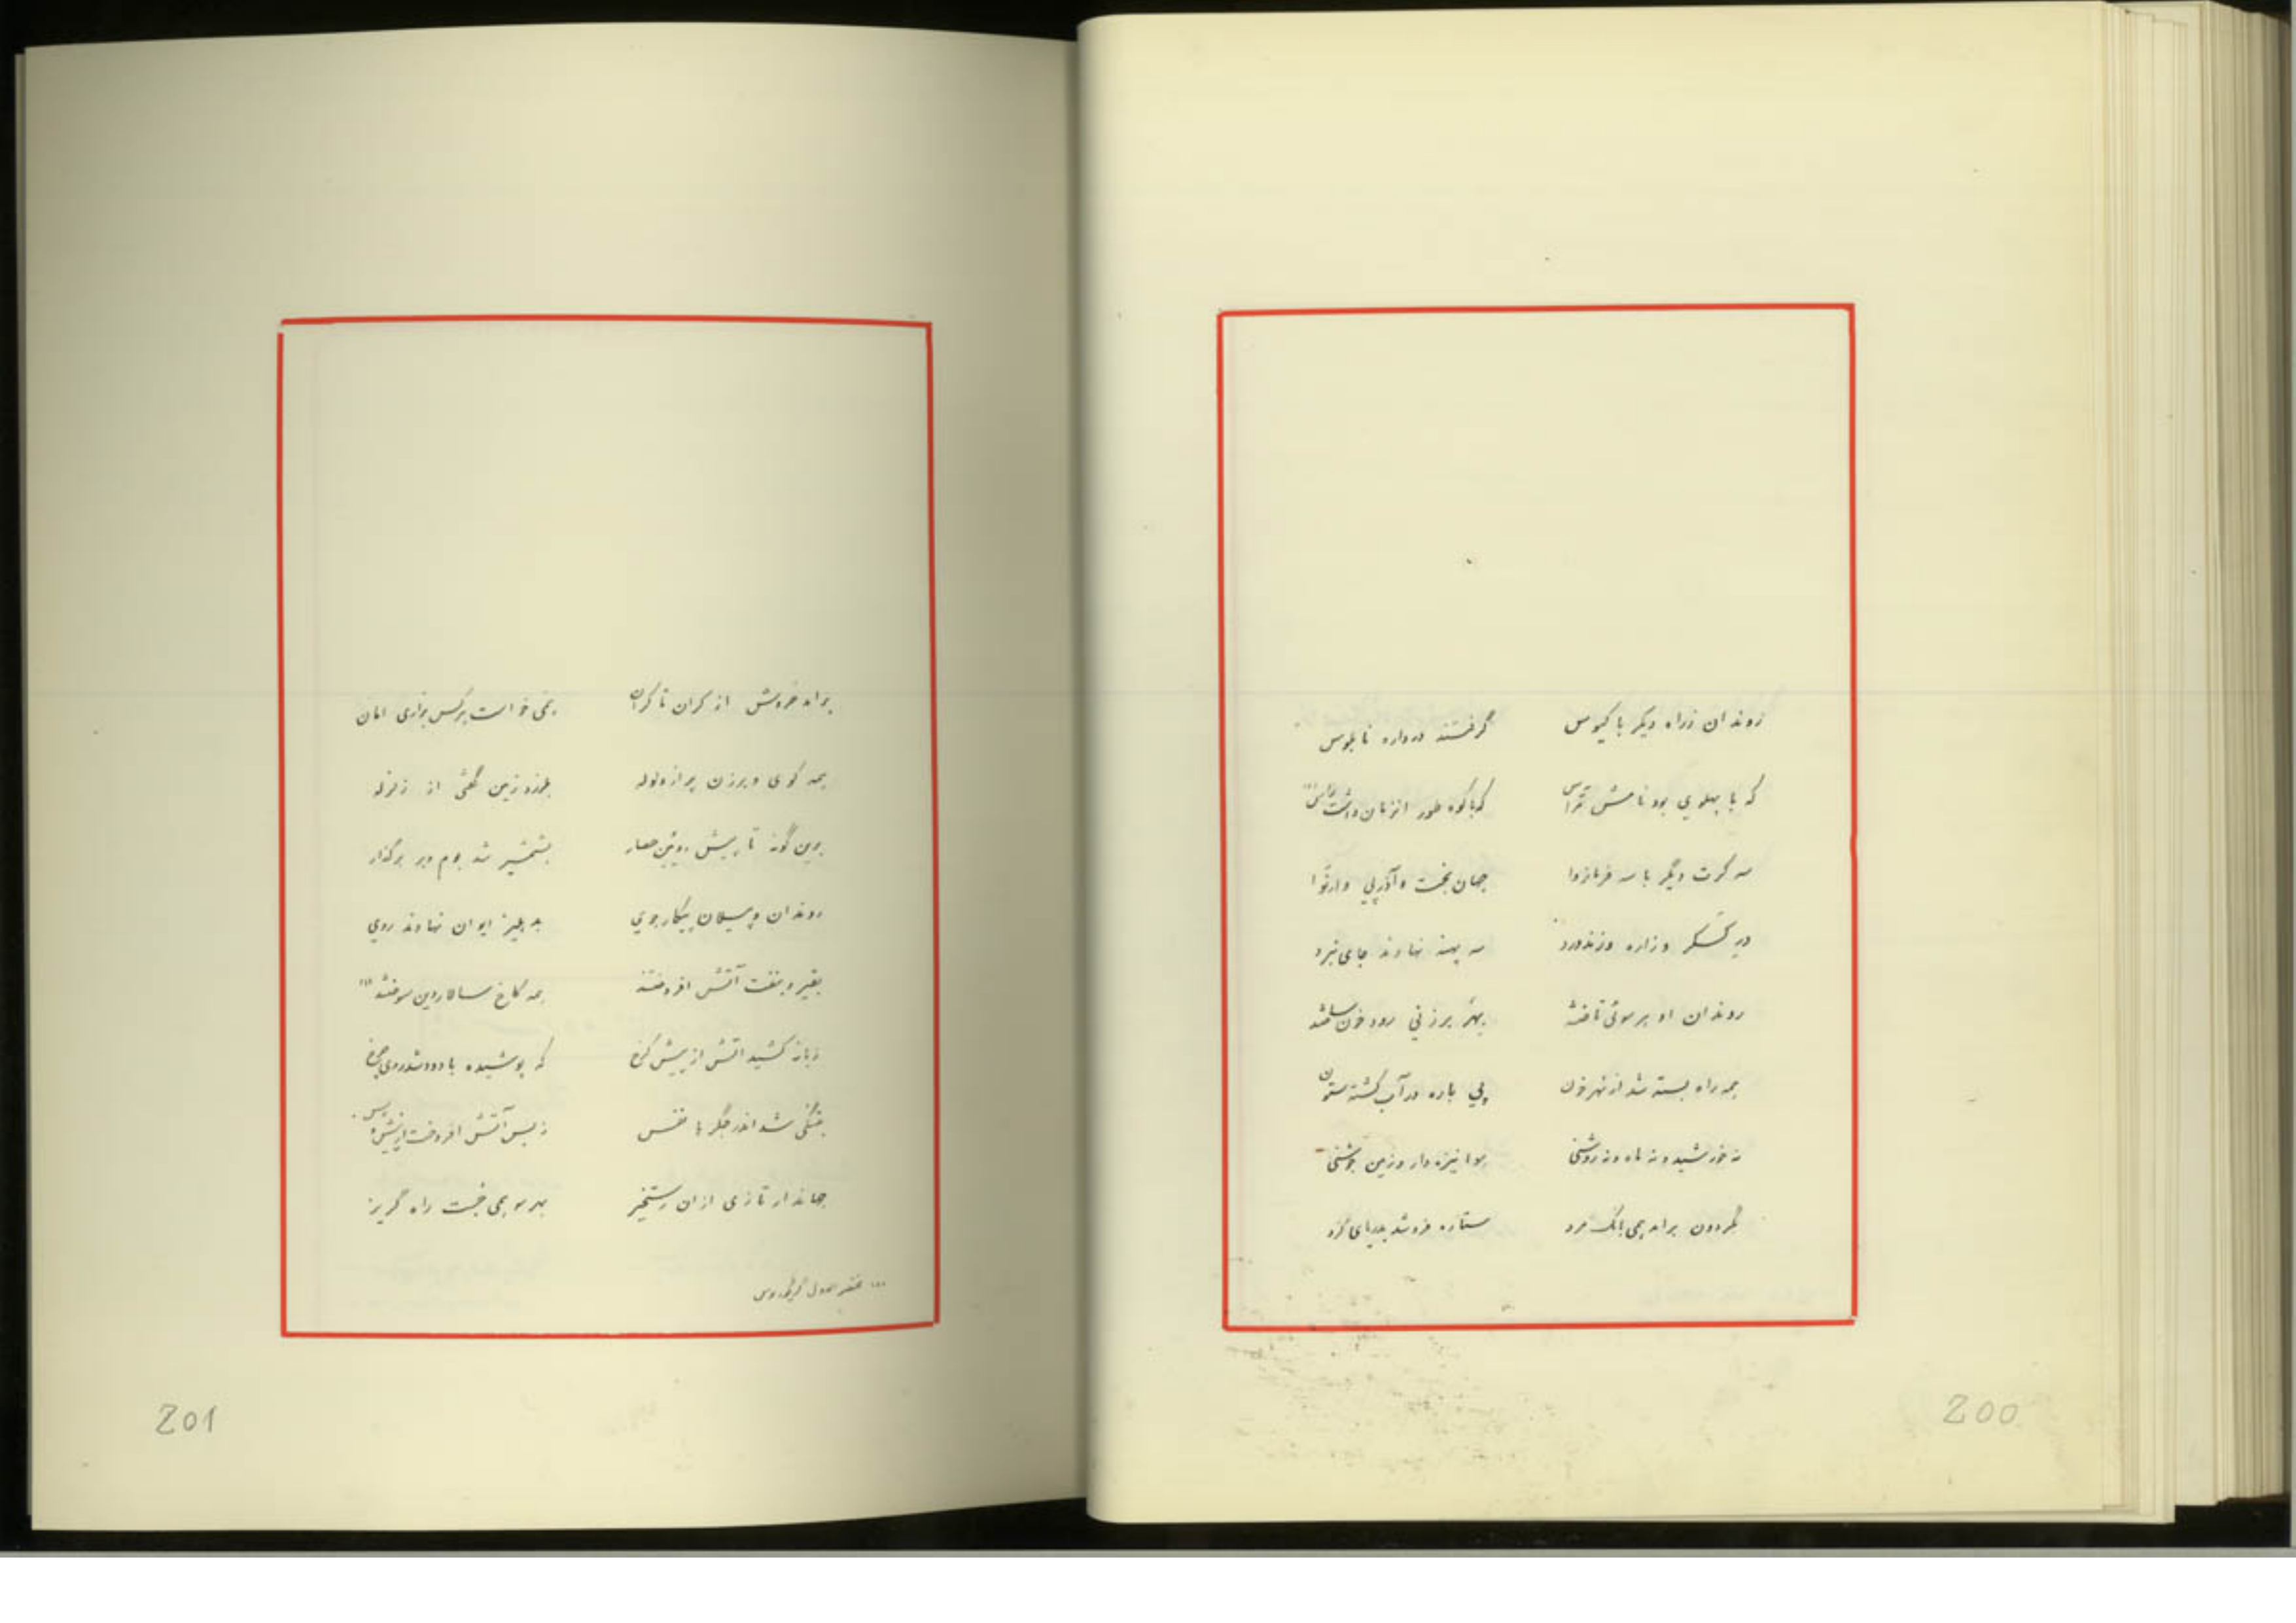 روندان ز راه دیگر با کیوس گرفتند دروازه نابلوس
که با پهلوی بود نامش که با کوه طور داشت
سه کرت دیگر با سه فرمانروا جهان بخت و آذرپی و
در کسکر و زاره و زندورد سه پهنه نهادند جای نبرد
روندان او بر سوئی تاختند بهر برزنی رود خون ساختند
همه راه بسته شد از نهر خون پی باره در آب گشته ستون
نه خورشید و نه ماه و نه روشنی هوا نیزه دار و زمین جوشنی
بگردون برآمد همی بانگ مرد ستاره فرو شد بدریای گرد
200
برآمد خروش از کران تا کران همی خواست هرکس بزاری امان
همه کوی و برزن پر از ولوله بلرزد زمین گفتی از زلزله
بدین گونه تا پیش روئین حصار بشمشیر شد بوم و بر برگذار
روندان و پیلان پیکارجوی به دهلیز ایوان نهادند روی
بقیر و بنفت آتش افروختند همه کاخ سالار دین سوختند
زبانه کشید آتش از پیش کاخ که پوشیده با دود شد روی چرخ
بخشکی شد اندر جگرها نفس ز بس آتش افروخت از پیش و پس
جهاندار تازی از آن رستخیز بهر سو همی جست راه گریز
مختصر الدول
201